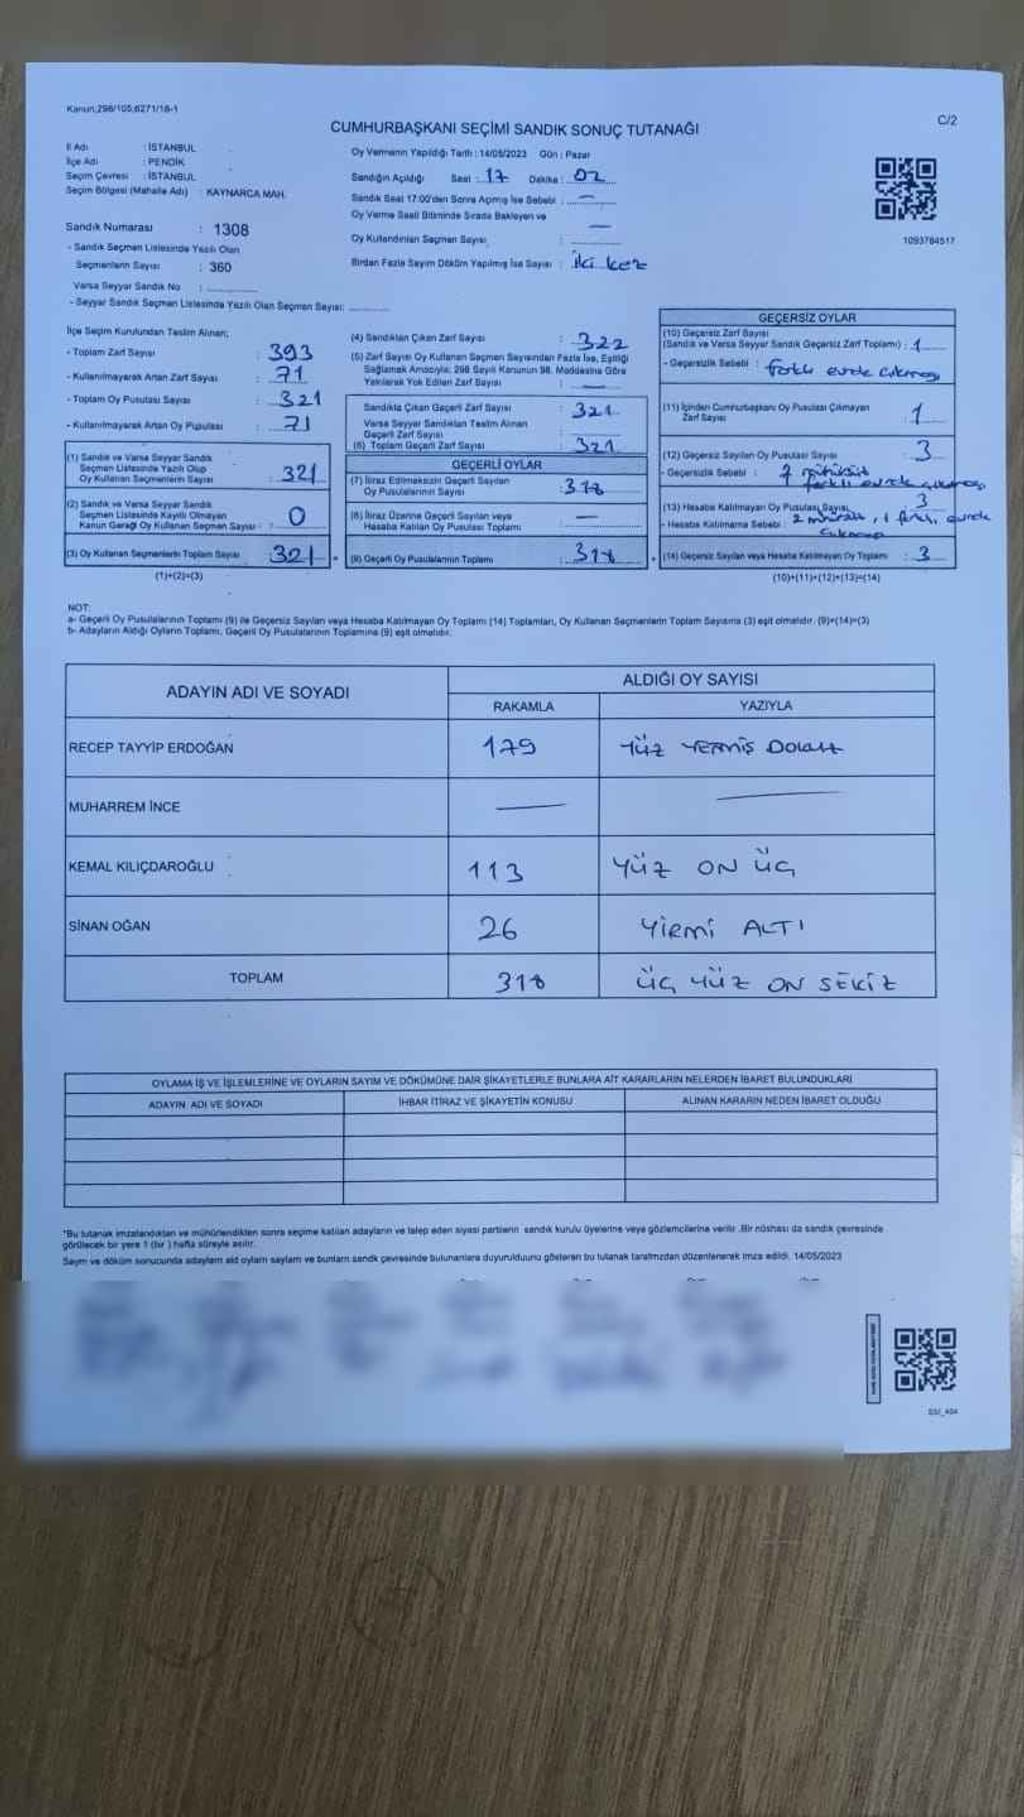 Kanun;298/105,6271/18-1
C/2
CUMHURBAŞKANI SEÇİMİ SANDIK SONUÇ TUTANAĞI
İl Adı : İSTANBUL
İlçe Adı : PENDİK
Seçim Çevresi : İSTANBUL
Seçim Bölgesi (Mahalle Adı) : KAYNARCA MAH.
Oy Vermenin Yapıldığı Tarih : 14/05/2023 Gün : Pazar
Sandığın Açıldığı Saat : 17 Dakika : 02
Sandık Saat 17:00'den Sonra Açılmış İse Sebebi : —
Oy Verme Saati Bitiminde Sırada Bekleyen ve
Oy Kullandırılan Seçmen Sayısı : —
Birdan Fazla Sayım Döküm Yapılmış İse Sayısı : iki kez
1093784517
Sandık Numarası : 1308
- Sandık Seçmen Listesinde Yazılı Olan
Seçmenlerin Sayısı : 360
Varsa Seyyar Sandık No :
- Seyyar Sandık Seçmen Listesinde Yazılı Olan Seçmen Sayısı:
İlçe Seçim Kurulundan Teslim Alınan;
- Toplam Zarf Sayısı : 393
- Kullanılmayarak Artan Zarf Sayısı : 71
- Toplam Oy Pusulası Sayısı : 321
- Kullanılmayarak Artan Oy Pupulası : 71
(1) Sandık ve Varsa Seyyar Sandık
Seçmen Listesinde Yazılı Olup
Oy Kullanan Seçmenlerin Sayısı : 321
(2) Sandık ve Varsa Seyyar Sandık
Seçmen Listesinde Kayıtlı Olmayan
Kanun Gereği Oy Kullanan Seçmen Sayısı : 0
(3) Oy Kullanan Seçmenlerin Toplam Sayısı 321
(1)+(2)=(3)
(4) Sandıktan Çıkan Zarf Sayısı : 322
(5) Zarf Sayısı Oy Kullanan Seçmen Sayısından Fazla İse, Eşitliği
Sağlamak Amacıyla; 298 Sayılı Kanunun 98. Maddesine Göre
Yakılarak Yok Edilen Zarf Sayısı : —
Sandıkta Çıkan Geçerli Zarf Sayısı : 321
Varsa Seyyar Sandıktan Teslim Alınan
Geçerli Zarf Sayısı :
(6) Toplam Geçerli Zarf Sayısı 321
GEÇERLİ OYLAR
(7) İtiraz Edilmeksizin Geçerli Sayılan
Oy Pusulalarının Sayısı : 318
(8) İtiraz Üzerine Geçerli Sayılan veya
Hesaba Katılan Oy Pusulası Toplamı : —
(9) Geçerli Oy Pusulalarının Toplamı : 318
GEÇERSİZ OYLAR
(10) Geçersiz Zarf Sayısı
(Sandık ve Varsa Seyyar Sandık Geçersiz Zarf Toplamı) : 1
- Geçersizlik Sebebi : farklı evrak çıkması
(11) İçinden Cumhurbaşkanı Oy Pusulası Çıkmayan
Zarf Sayısı 1
(12) Geçersiz Sayılan Oy Pusulası Sayısı 3
- Geçersizlik Sebebi :
(13) Hesaba Katılmayan Oy Pusulası Sayısı 3
- Hesaba Katılmama Sebebi : 2 , 1 farklı evrak
çıkması
(14) Geçersiz Sayılan veya Hesaba Katılmayan Oy Toplamı : 3
(10)+(11)+(12)+(13)=(14)
NOT:
a- Geçerli Oy Pusulalarının Toplamı (9) ile Geçersiz Sayılan veya Hesaba Katılmayan Oy Toplamı (14) Toplamları, Oy Kullanan Seçmenlerin Toplam Sayısına (3) eşit olmalıdır. (9)+(14)=(3)
b- Adayların Aldığı Oyların Toplamı, Geçerli Oy Pusulalarının Toplamına (9) eşit olmalıdır.
ADAYIN ADI VE SOYADI ALDIĞI OY SAYISI
RAKAMLA YAZIYLA
RECEP TAYYİP ERDOĞAN 179 YÜZ YETMİŞ DOKUZ
MUHARREM İNCE — —
KEMAL KILIÇDAROĞLU 113 YÜZ ON ÜÇ
SİNAN OĞAN 26 YİRMİ ALTI
TOPLAM 318 ÜÇ YÜZ ON SEKİZ
OYLAMA İŞ VE İŞLEMLERİNE VE OYLARIN SAYIM VE DÖKÜMÜNE DAİR ŞİKAYETLERLE BUNLARA AİT KARARLARIN NELERDEN İBARET BULUNDUKLARI
ADAYIN ADI VE SOYADI İHBAR İTİRAZ VE ŞİKAYETİN KONUSU ALINAN KARARIN NEDEN İBARET OLDUĞU
*Bu tutanak imzalandıktan ve mühürlendikten sonra seçime katılan adayların ve talep eden siyasi partilerin sandık kurulu üyelerine veya gözlemcilerine verilir. Bir nüshası da sandık çevresinde
görülecek bir yere 1 (bir) hafta süreyle asılır.
Sayım ve döküm sonucunda adayların ald oyların sayılan ve bunların sandık çevresinde bulunanlara duyurulduunu gösteren bu tutanak tarafımızdan düzenlenerek imza edildi. 14/05/2023